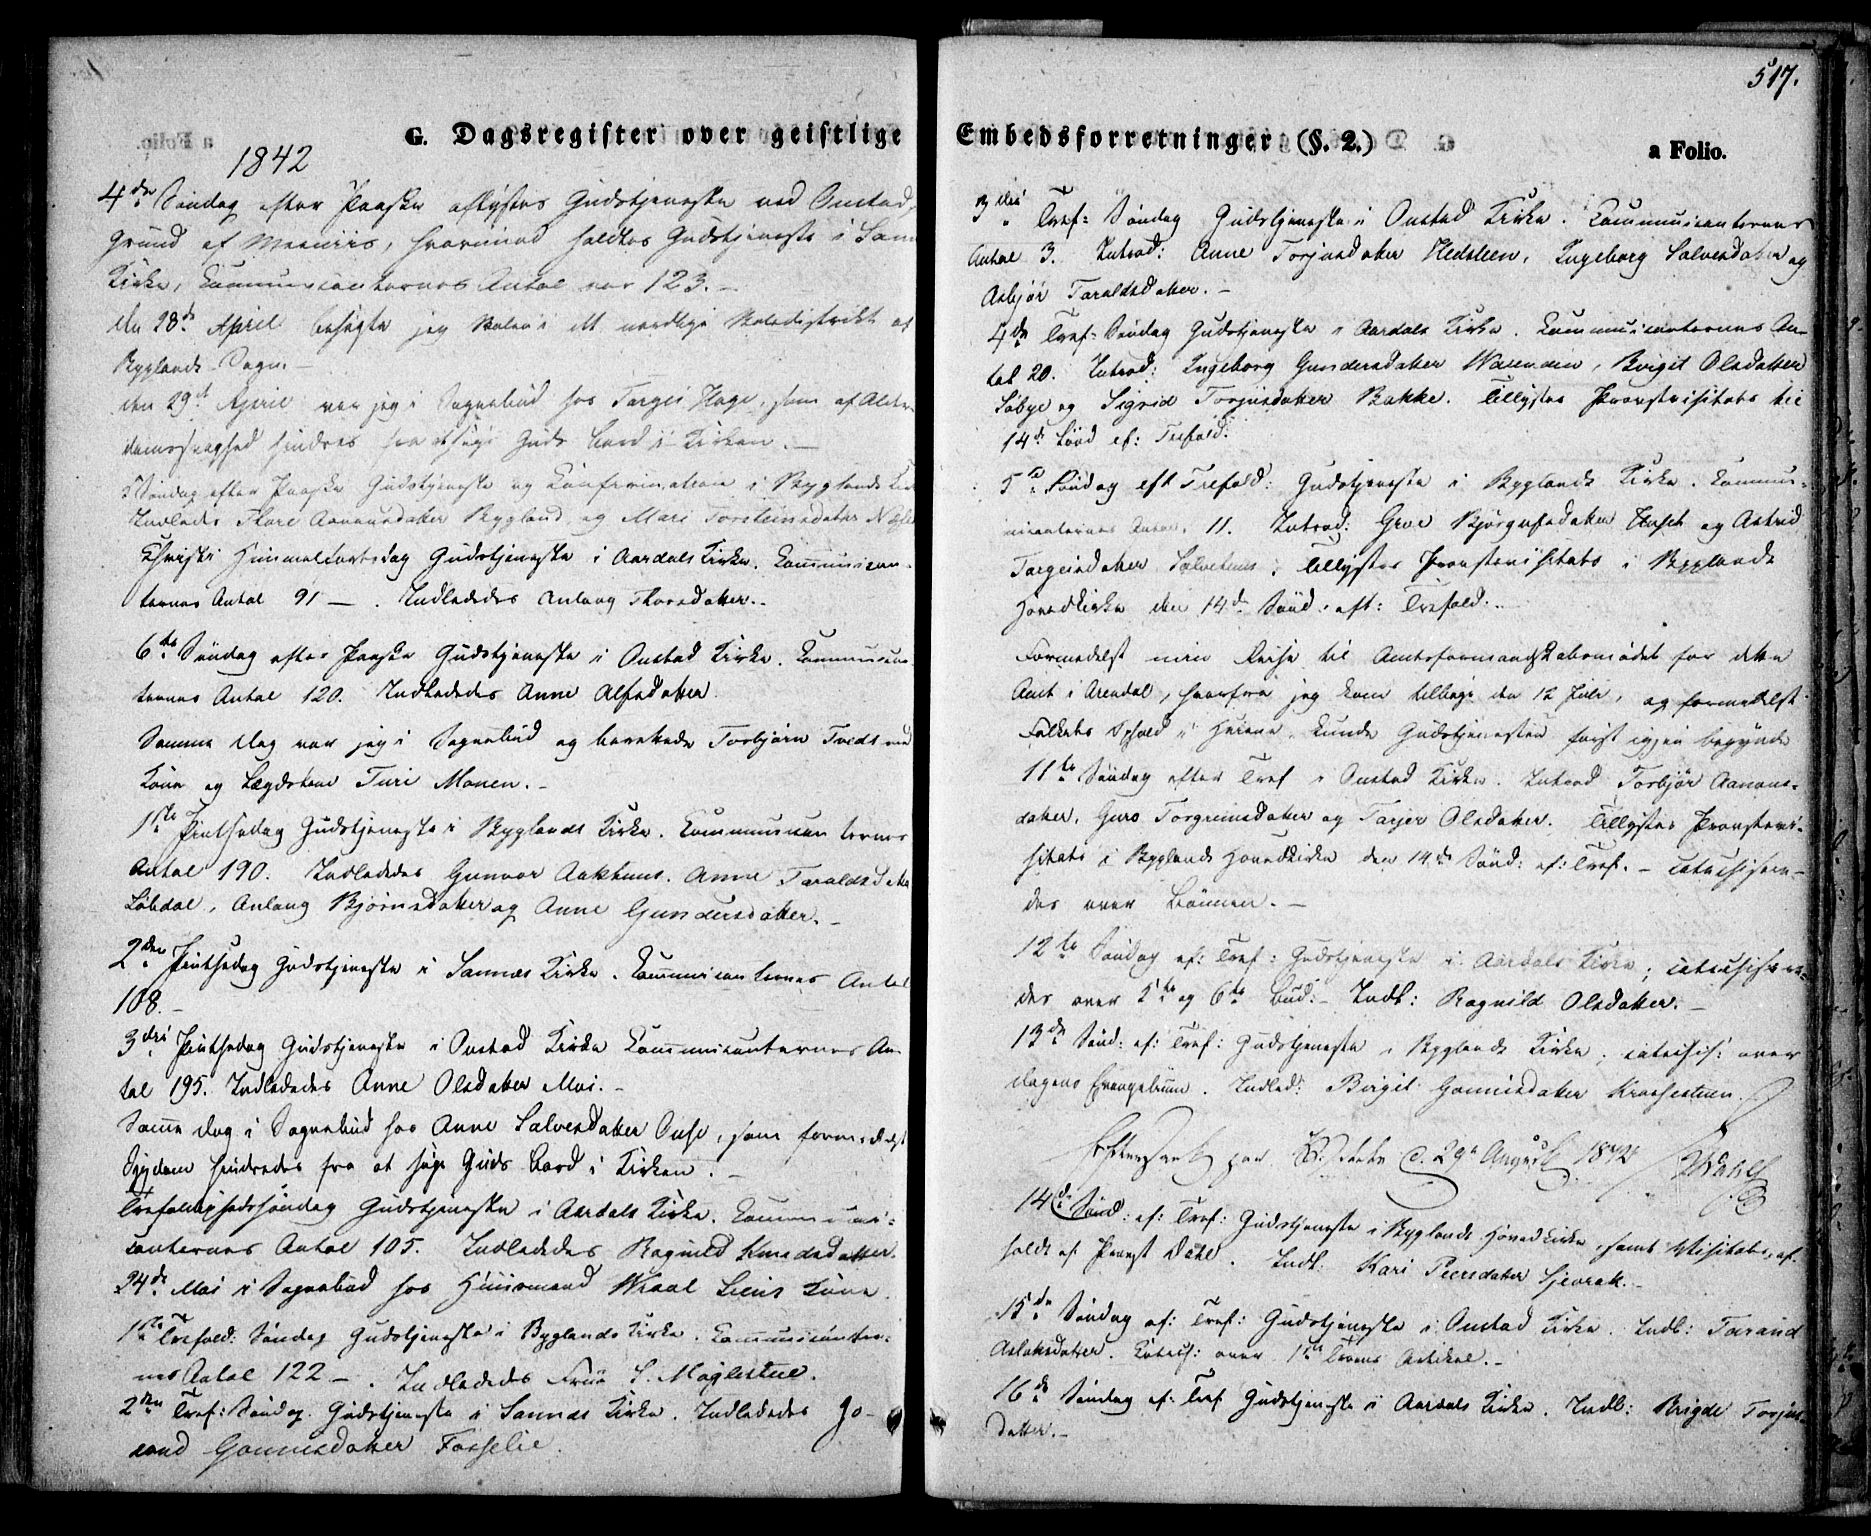 517.
G. Dagsregister over geistlige Embedsforretninger (§. 2.)
a Folio.
1842
4de Søndag efter Paaske aflystes Gudstjeneste ved Onstad,
Grund af Meeniis, hvorimod holdtes Gudstjeneste i Sann
Kirke, Communicanternes Antal var 123. –
den 28de April besøgte jeg Skolen i det nordlige Skoledistrikt af
Byglands Sogn. –
den 29de April var jeg i Sognebud hos Targei Hage, som af Alder-
domssvaghed hindres fra at søge Guds bord i Kirken. –
5 Søndag efter Paaske Gudstjeneste og Confirmation i Byglands Kir
Indledes Thore Aanonsdatter Bygland og Mari Torsteinsdatter Næs
Christi Himmelfartsdag Gudstjeneste i Aardals Kirke. Communican-
ternes Antal 91 – . Indledes Anlaug Thorsdatter. –
6te Søndag efter Paaske Gudstjeneste i Onstad Kirke. Communican-
ternes Antal 120. Indledes Anne Alfsdatter.
Samme dag var jeg i Sognebud og berettede Torbjørn Tvedt
Kone og Lægdskone Turi Monen. –
1ste Pintsedag Gudstjeneste i Byglands Kirke. Communicanternes
Antal 190. Indledes Gunvor Aakhuus, Anne Taraldsdatter
Løbdal, Anlaug Bjørnsdatter og Anne Gundersdatter. –
2den Pintsedag Gudstjeneste i Sannæs Kirke. Communicanternes Antal
108. –
3die Pintsedag Gudstjeneste i Onstad Kirke Communicanternes An-
tal 195. Indledes Anne Olsdatter Moi. –
Samme dag i Sognebud hos Anne Salvesdatter Ouse, som formedelst
Sygdom hindredes fra at søge Guds bord i Kirken. –
Trefoldighedssøndag Gudstjeneste i Aardals Kirke. Communi-
canternes Antal 105. Indledes Ragnild Knudsdatter.
24de Mai i Sognebud hos Huusmand Wraal Liens Kone.
1ste Trefold: Søndag Gudstjeneste i Byglands Kirke. Communicanter-
nes Antal 122 – . Indledes Frue S. Møglestue.
2den Tref: Søndag Gudstjeneste i Sannæs Kirke. Indledes Jo-
rand Gonnesdatter Fosselie.
3die Tref: Søndag Gudstjeneste i Onstad Kirke. Communicanternes
Antal 3. Introd: Anne Torjusdatter Hedsteen, Ingeborg Salvesdatter og
Asbjør Taraldsdatter. –
4de Tref: Søndag Gudstjeneste i Aardals Kirke. Communicanternes An-
tal 20. Introd: Ingeborg Gundersdatter Waanden, Birgit Olsdatter
Løbye og Sigrid Torjusdatter Bakke. Tillystes Provstevisitats til
14de Sønd ef: Trefold:
5te Søndag eft Trefold: Gudstjeneste i Byglands Kirke. Commu-
nicanternes Antal 11. Introd: Groe Bjørgufsdatter Unset og Astrid
Targeisdatter . Tillystes Provstevisitats i Byglands
Hovedkirke den 14de Sønd: eft: Trefold. –
Formedelst min Reise til Amtsformandskabsmødet for dette
Amt i Arendal, hvorfra jeg kom tilbage den 12 Juli, og formedelst
Folkets Ophold i Heiene, kunde Gudstjenesten først igjen begynde
11te Søndag efter Tref i Onstad Kirke. Introd Torbjør Aanons-
datter, Guro Torgrimsdatter og Tarjer Olsdatter. Tillystes Provstevi-
sitats i Byglands Hovedkirke den 14de Sønd: ef: Tref. – catechisere-
des over Bønnen. –
12te Søndag ef: Tref: Gudstjeneste i Aardals Kirke; catechisere-
des over 5te og 6te Bud. – Indl: Ragnild Olsdatter. –
13de Sønd: ef: Tref: Gudstjeneste i Byglands Kirke; catechis: over
dagens Evangelium. Indled: Birgit Gonnesdatter .
Efterseet paa Visitats d. 29de August 1842. Dahl
14de Sønd: ef: Tref: Gudstjeneste i Byglands Hovedkirke, samt Visitats, af-
holdt af Provst Dahl. Indl: Kari Peersdatter Sjevrak. –
15de Søndag ef: Tref: Gudstjeneste i Onstad Kirke. Indl: Tarand
Aslaksdatter. Catech: over 1ste Troens Artikel. –
16de Søndag ef: Tref Gudstjeneste i Aardals Kirke. Indl: Brigde Torjus-
datter. –